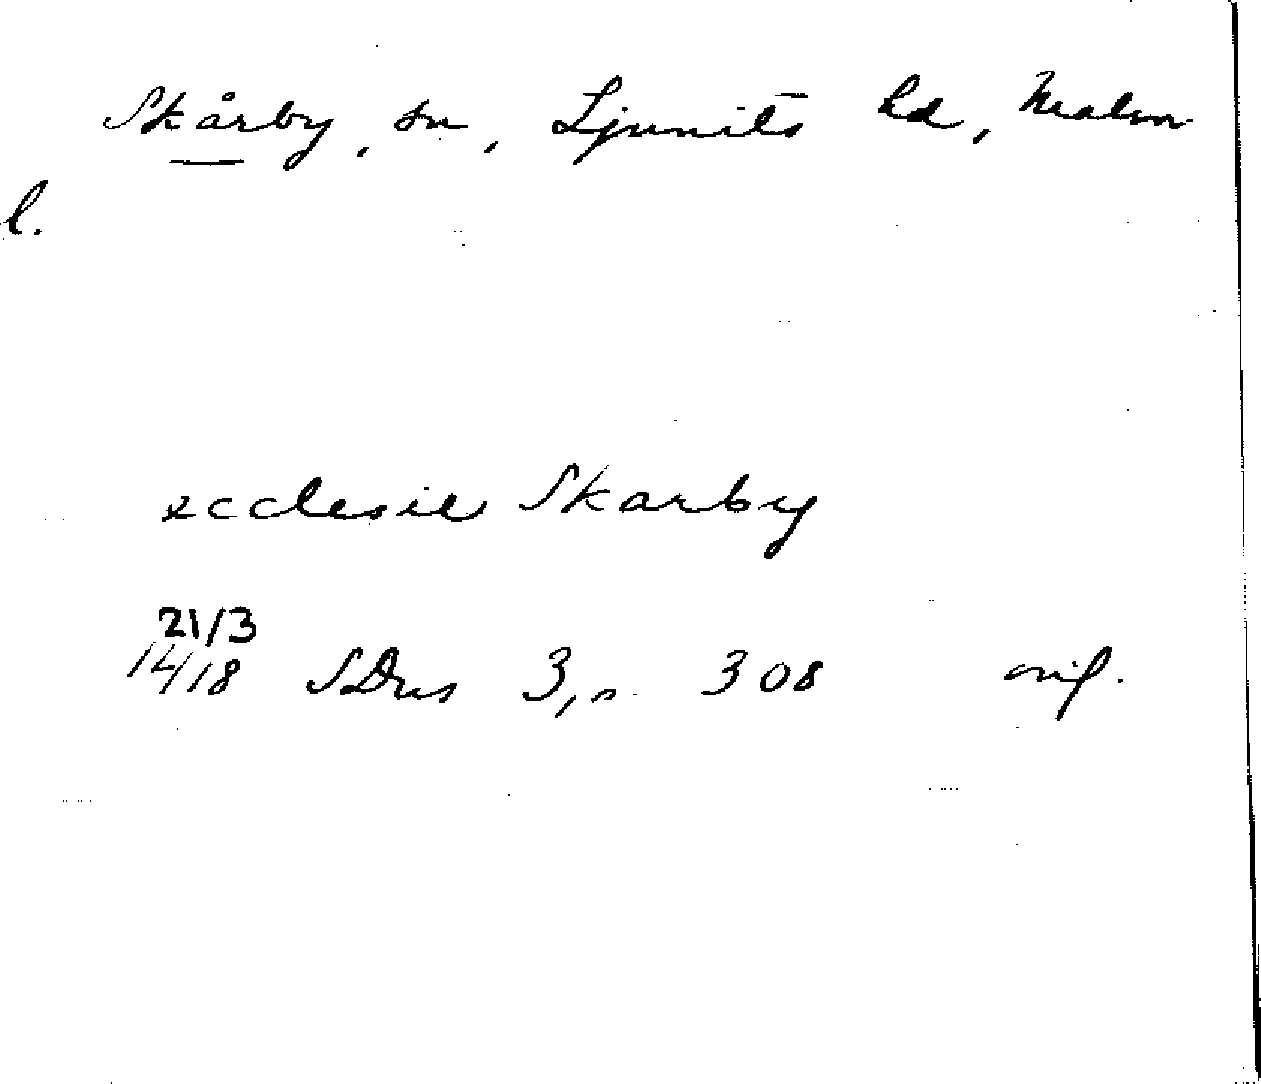 Skårby, sn, Ljunits hd, Malm.
l.
ecclesie Skarby
21/3
1418 SDns 3, s. 308 orig.